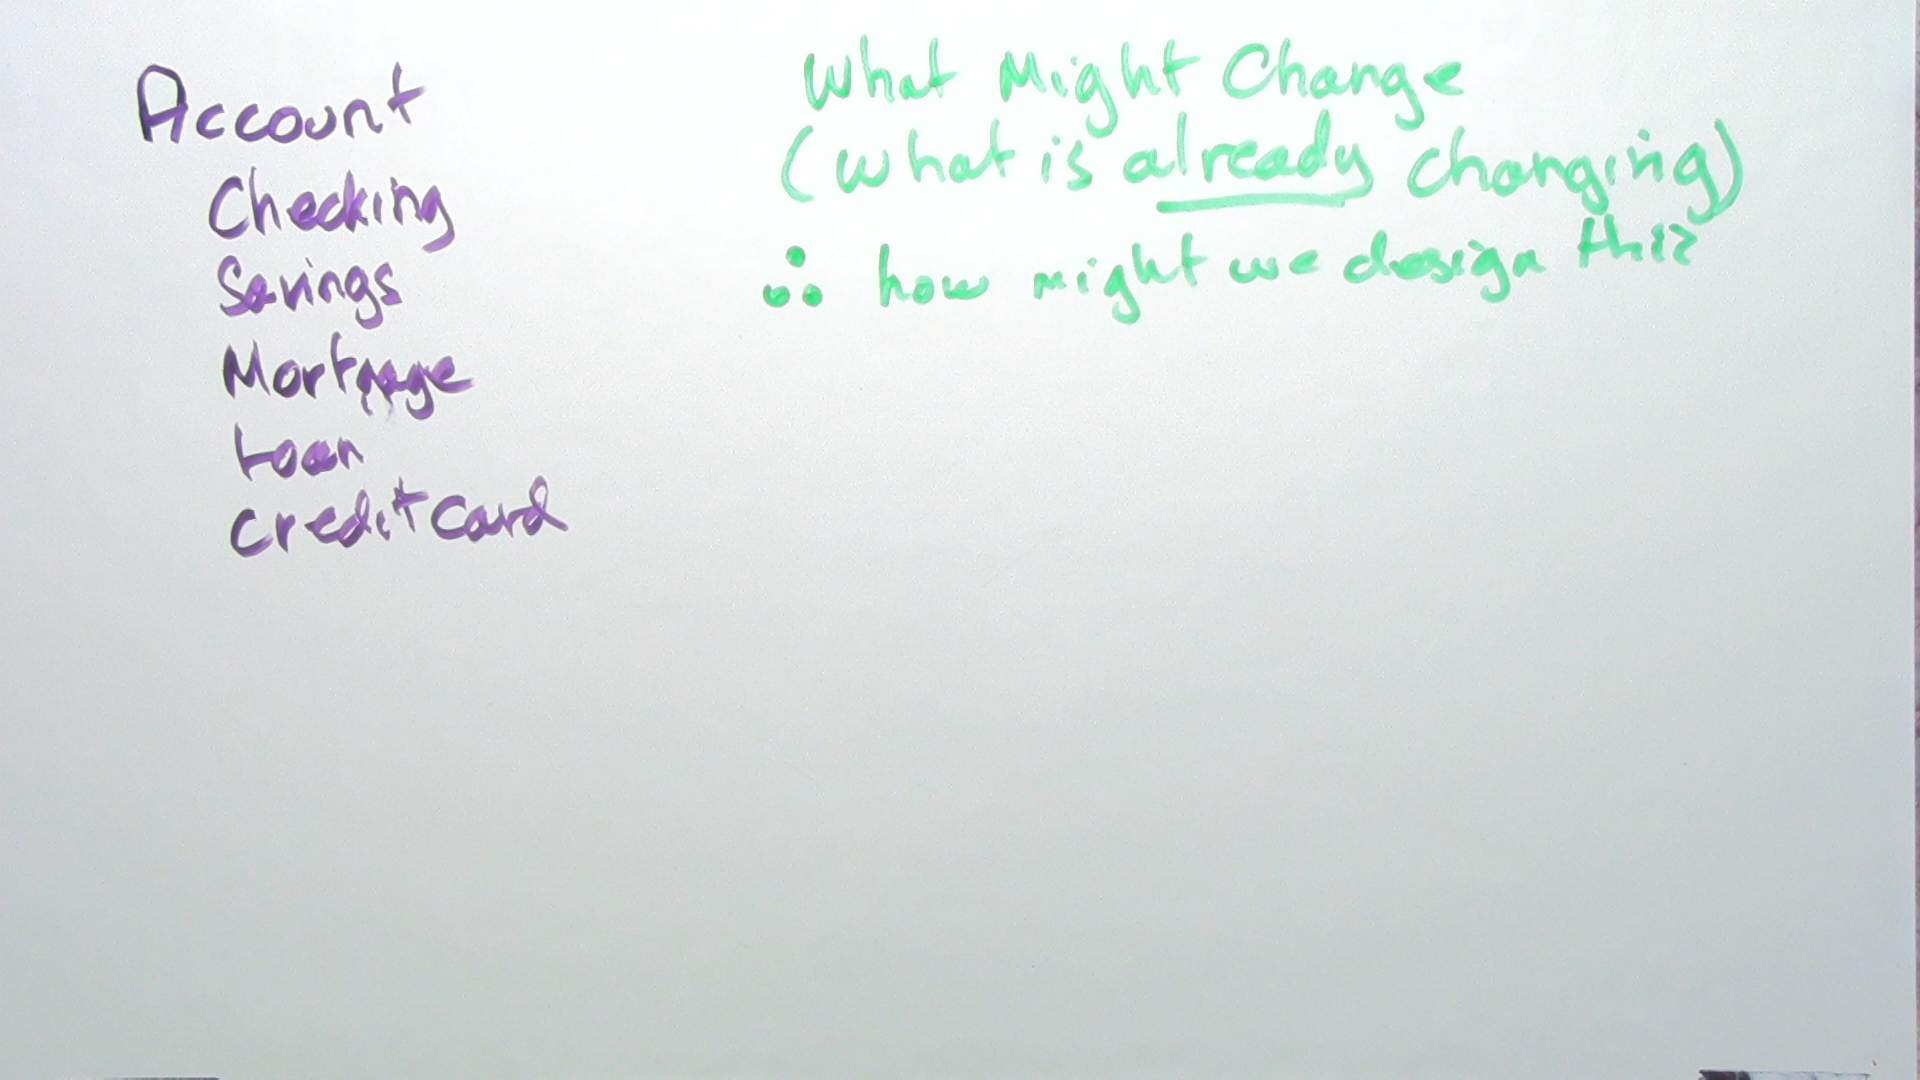 Account
Checking
Savings
Mortgage
Loan
Credit Card
What Might Change
(What is already changing)
∴ how might we design this